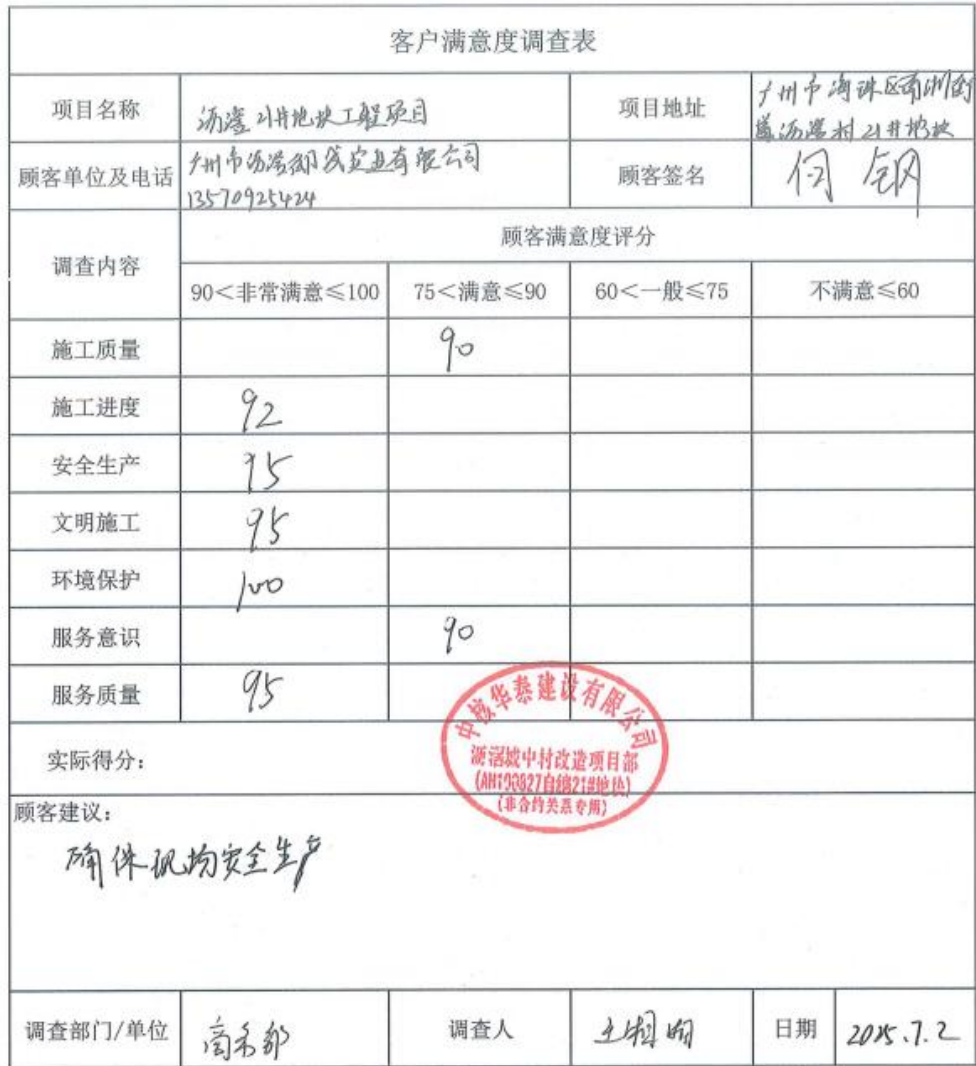 客户满意度调查表
项目名称 沥滘21#地块工程项目 项目地址 广州市海珠区南洲街
道沥滘村21#地块
顾客单位及电话 广州市沥滘 实业有限公司 顾客签名 何钢
13570925424
调查内容 顾客满意度评分
90<非常满意≤100 75<满意≤90 60<一般≤75 不满意≤60
施工质量 90
施工进度 92
安全生产 95
文明施工 95
环境保护 100
服务意识 90
服务质量 95
中核华泰建设有限公司
沥滘城中村改造项目部
(非合约关系专用)
实际得分：
顾客建议：
确保现场安全生产
调查部门/单位 商务部 调查人 王 日期 2025.7.2